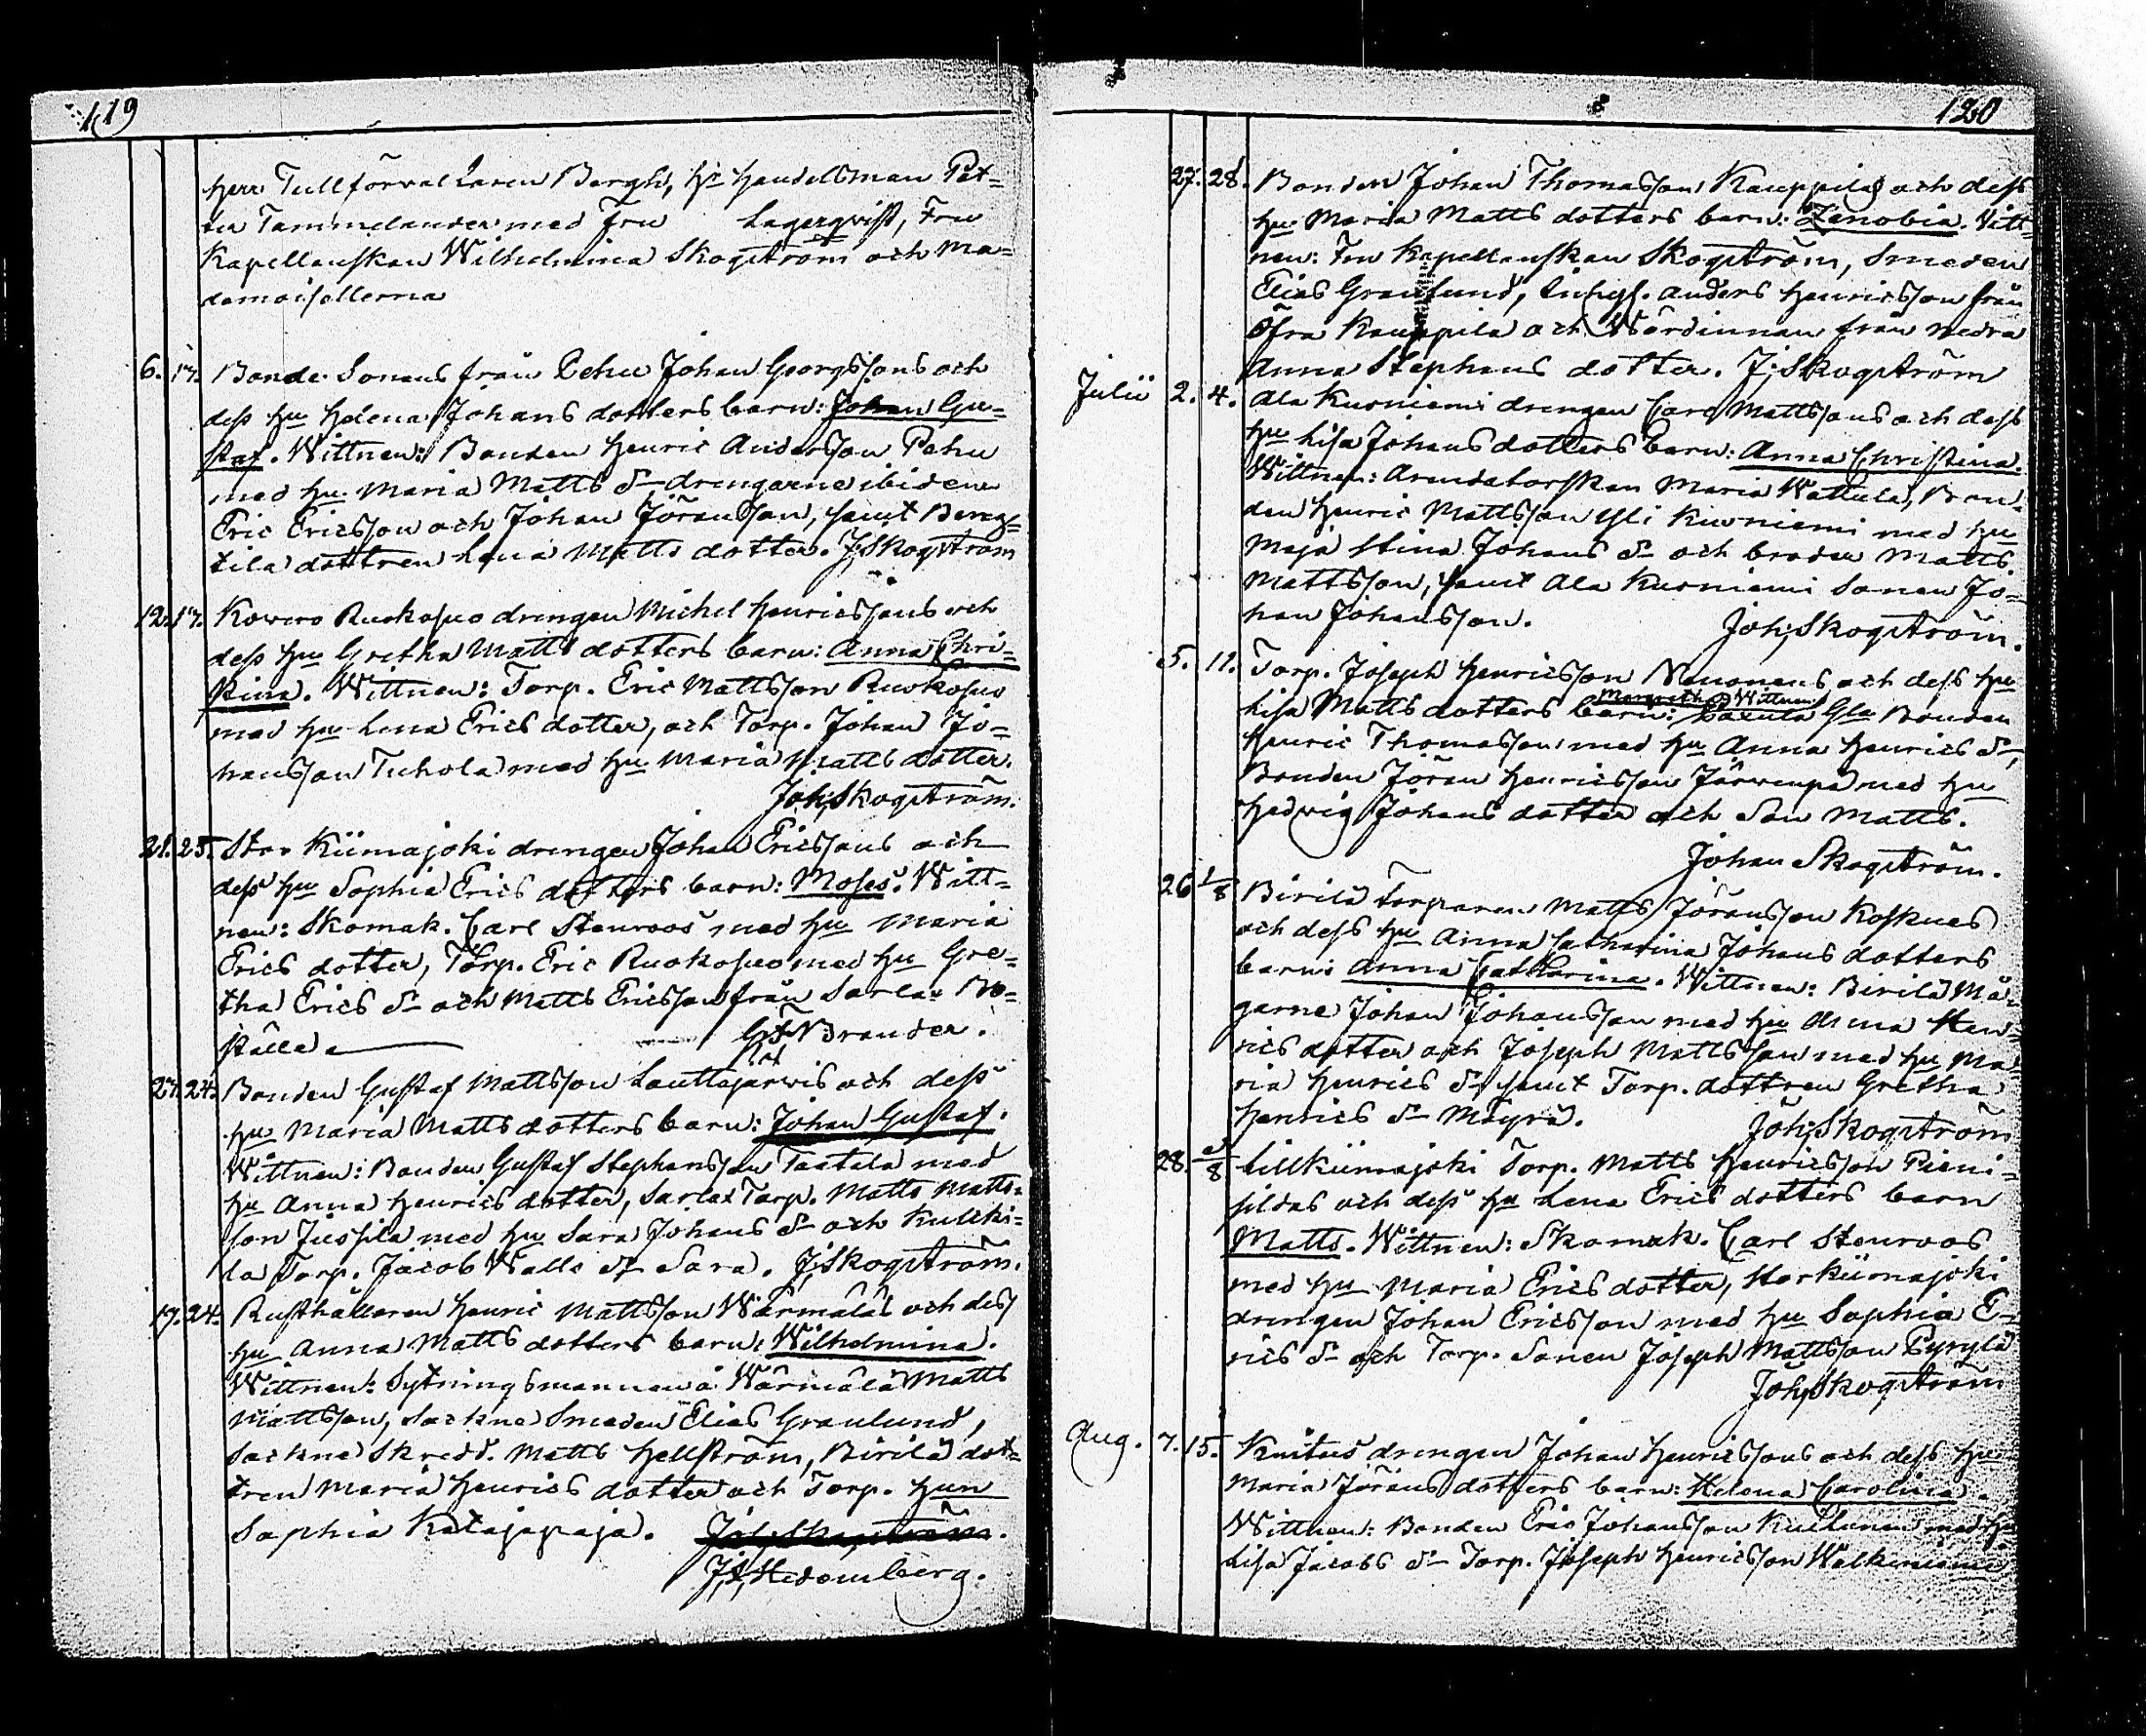 119
Herr Tullförvaltaren Bergh, Hr Handelsman Pet=
ter Tammelander med Fru Lagerqvist, Fru
Kapellanskan Wilhelmina Skogström och Ma=
damoisellerna
6. 17. Bonde Sonens från Pehu Johan Georgssons och
dess Hu Helena Johans dotters barn: Johan Gu=
staf. Wittnen: Bonden Henric Andersson Pehu
med Hu Maria Matts dr drengarne ibidem
Eric Ericsson och Johan Jöransson, samt
tila dottren Lena Matts dotter. J. Skogström
12. 17. Kowero Ruokosuo drengen Michel Henricssons och
dess Hu Gretha Matts dotters barn: Anna Chri=
stina. Wittnen: Torp. Eric Mattsson Ruokosuo
med Hu Lena Erics dotter, och Torp. Johan Jo=
hansson Tuhola med Hu Maria Matts dotter.
Joh. Skogström.
21. 25. Stor Kiimajoki drengen Johan Ericssons och
dess Hu Sophia Erics dotters barn: Moses. Witt=
nen: Skomak. Carl Stenroos med Hu Maria
Erics dotter, Torp. Eric Ruokosuo med Hu Gre=
tha Erics dr och Matts Ericsson från Sarlax Bo=
ställe. Brander.
24. Bonden Gustaf Mattsson Lauttajärwis och dess
Hu Maria Matts dotters barn: Johan Gustaf.
Wittnen: Bonden Gustaf Stephansson Taatala med
Hu Anna Henrics dotter, Sarlax Torp. Matts Matts=
son Jussila med Hu Sara Johans dr och Kulcki=
la Torp. Jacob Walls dr Sara. J. Skogström.
19. 24. Rusthållaren Henric Mattsson Wärmäläs och dess
Hu Anna Matts dotters barn: Wilhelmina.
Wittnen: Sytningsmannen å Wärmälä Matts
Mattsson, Sockne Smeden Elias Granlund,
Sockne Skredd. Matts Hellström, Birilä dot=
tren Maria Henrics dotter och Torp. Hun
Sophia Katajapaja. Joh. Skogström.
Hedemberg.
120
27. 28. Bonden Johan Thomasson Kauppilas och dess
Hu Maria Matts dotters barn: Zenobia. Witt=
nen: Fru Kapellanskan Skogström, Smeden
Elias Granlund, Anders Henricsson från
Öfra Kauppila och Wärdinnan från Nedra
Anna Stephans dotter. J. Skogström
Julii 2. 4. Ala Kurniemi drengen Carl Mattssons och dess
Hu Lisa Johans dotters barn: Anna Christina.
Wittnen: Arendatorskan Maria Wattula, Bon=
den Henric Mattsson Yli Kurniemi med Hu
Maja Stina Johans dr och broder Matts
Mattsson, samt Ala Kurniemi Sonen Jo=
han Johansson. Joh. Skogström.
5. 11. Torp. Joseph Henricsson Nauonens och dess Hu
Margretha Wittnen
Lisa Matts dotters barn: Bonden
Henric Thomasson med Hu Anna Henrics dr,
Bonden Jöran Henricsson Järwenpä med Hu
Hedwig Johans dotter och Son Matts.
Johan Skogström.
26 1/8 Birilä Torparen Matts Jöransson Koskues
och dess Hu Anna Catharina Johans dotters
barn: Anna Catharina. Wittnen: Birilä Må=
garne Johan Johansson med Hu Anna Hen=
rics dotter och Joseph Mattsson med Hu Ma=
ria Henrics dr samt Torp. dottren Gretha
Henrics dr Mäyrä. Joh. Skogström
28. /8 Lillkiimajoki Torp. Matts Henricsson Pieni=
sildas och dess Hu Lena Erics dotters barn
Matts. Wittnen: Skomak. Carl Stenroos
med Hu Maria Erics dotter, Storkiimajoki
drengen Johan Ericsson med Hu Sophia E=
rics dr och Torp. Sonen Joseph Mattsson Pyrylä
Joh. Skogström
Aug. 7. 15. Knitus drengen Johan Henricssons och dess Hu
Maria Jörans dotters barn: Helena Carolina.
Wittnen: Bonden Eric Johansson med Hu
Lisa Jacobs dr Torp. Joseph Henricsson Walkiniemi